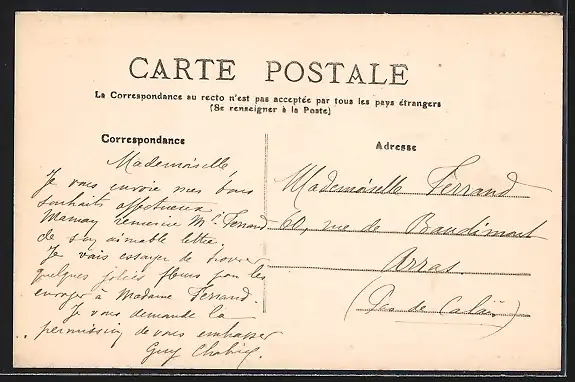 CARTE POSTALE
La Correspondance au recto n'est pas acceptée par tous les pays étrangers
(Se renseigner à la Poste)
Correspondance
Mademoiselle
Je vous envoie mes bons
souhaits affectueux.
Maman remercie Mlle Ferrand
de son aimable lettre.
Je vais essayer de trouver
quelques jolies fleurs pour les
envoyer à Madame Ferrand.
Je vous demande la
permission de vous embrasser
Guy
Adresse
Mademoiselle Ferrand
60, rue de Baudimont
Arras
(Pas de Calais)